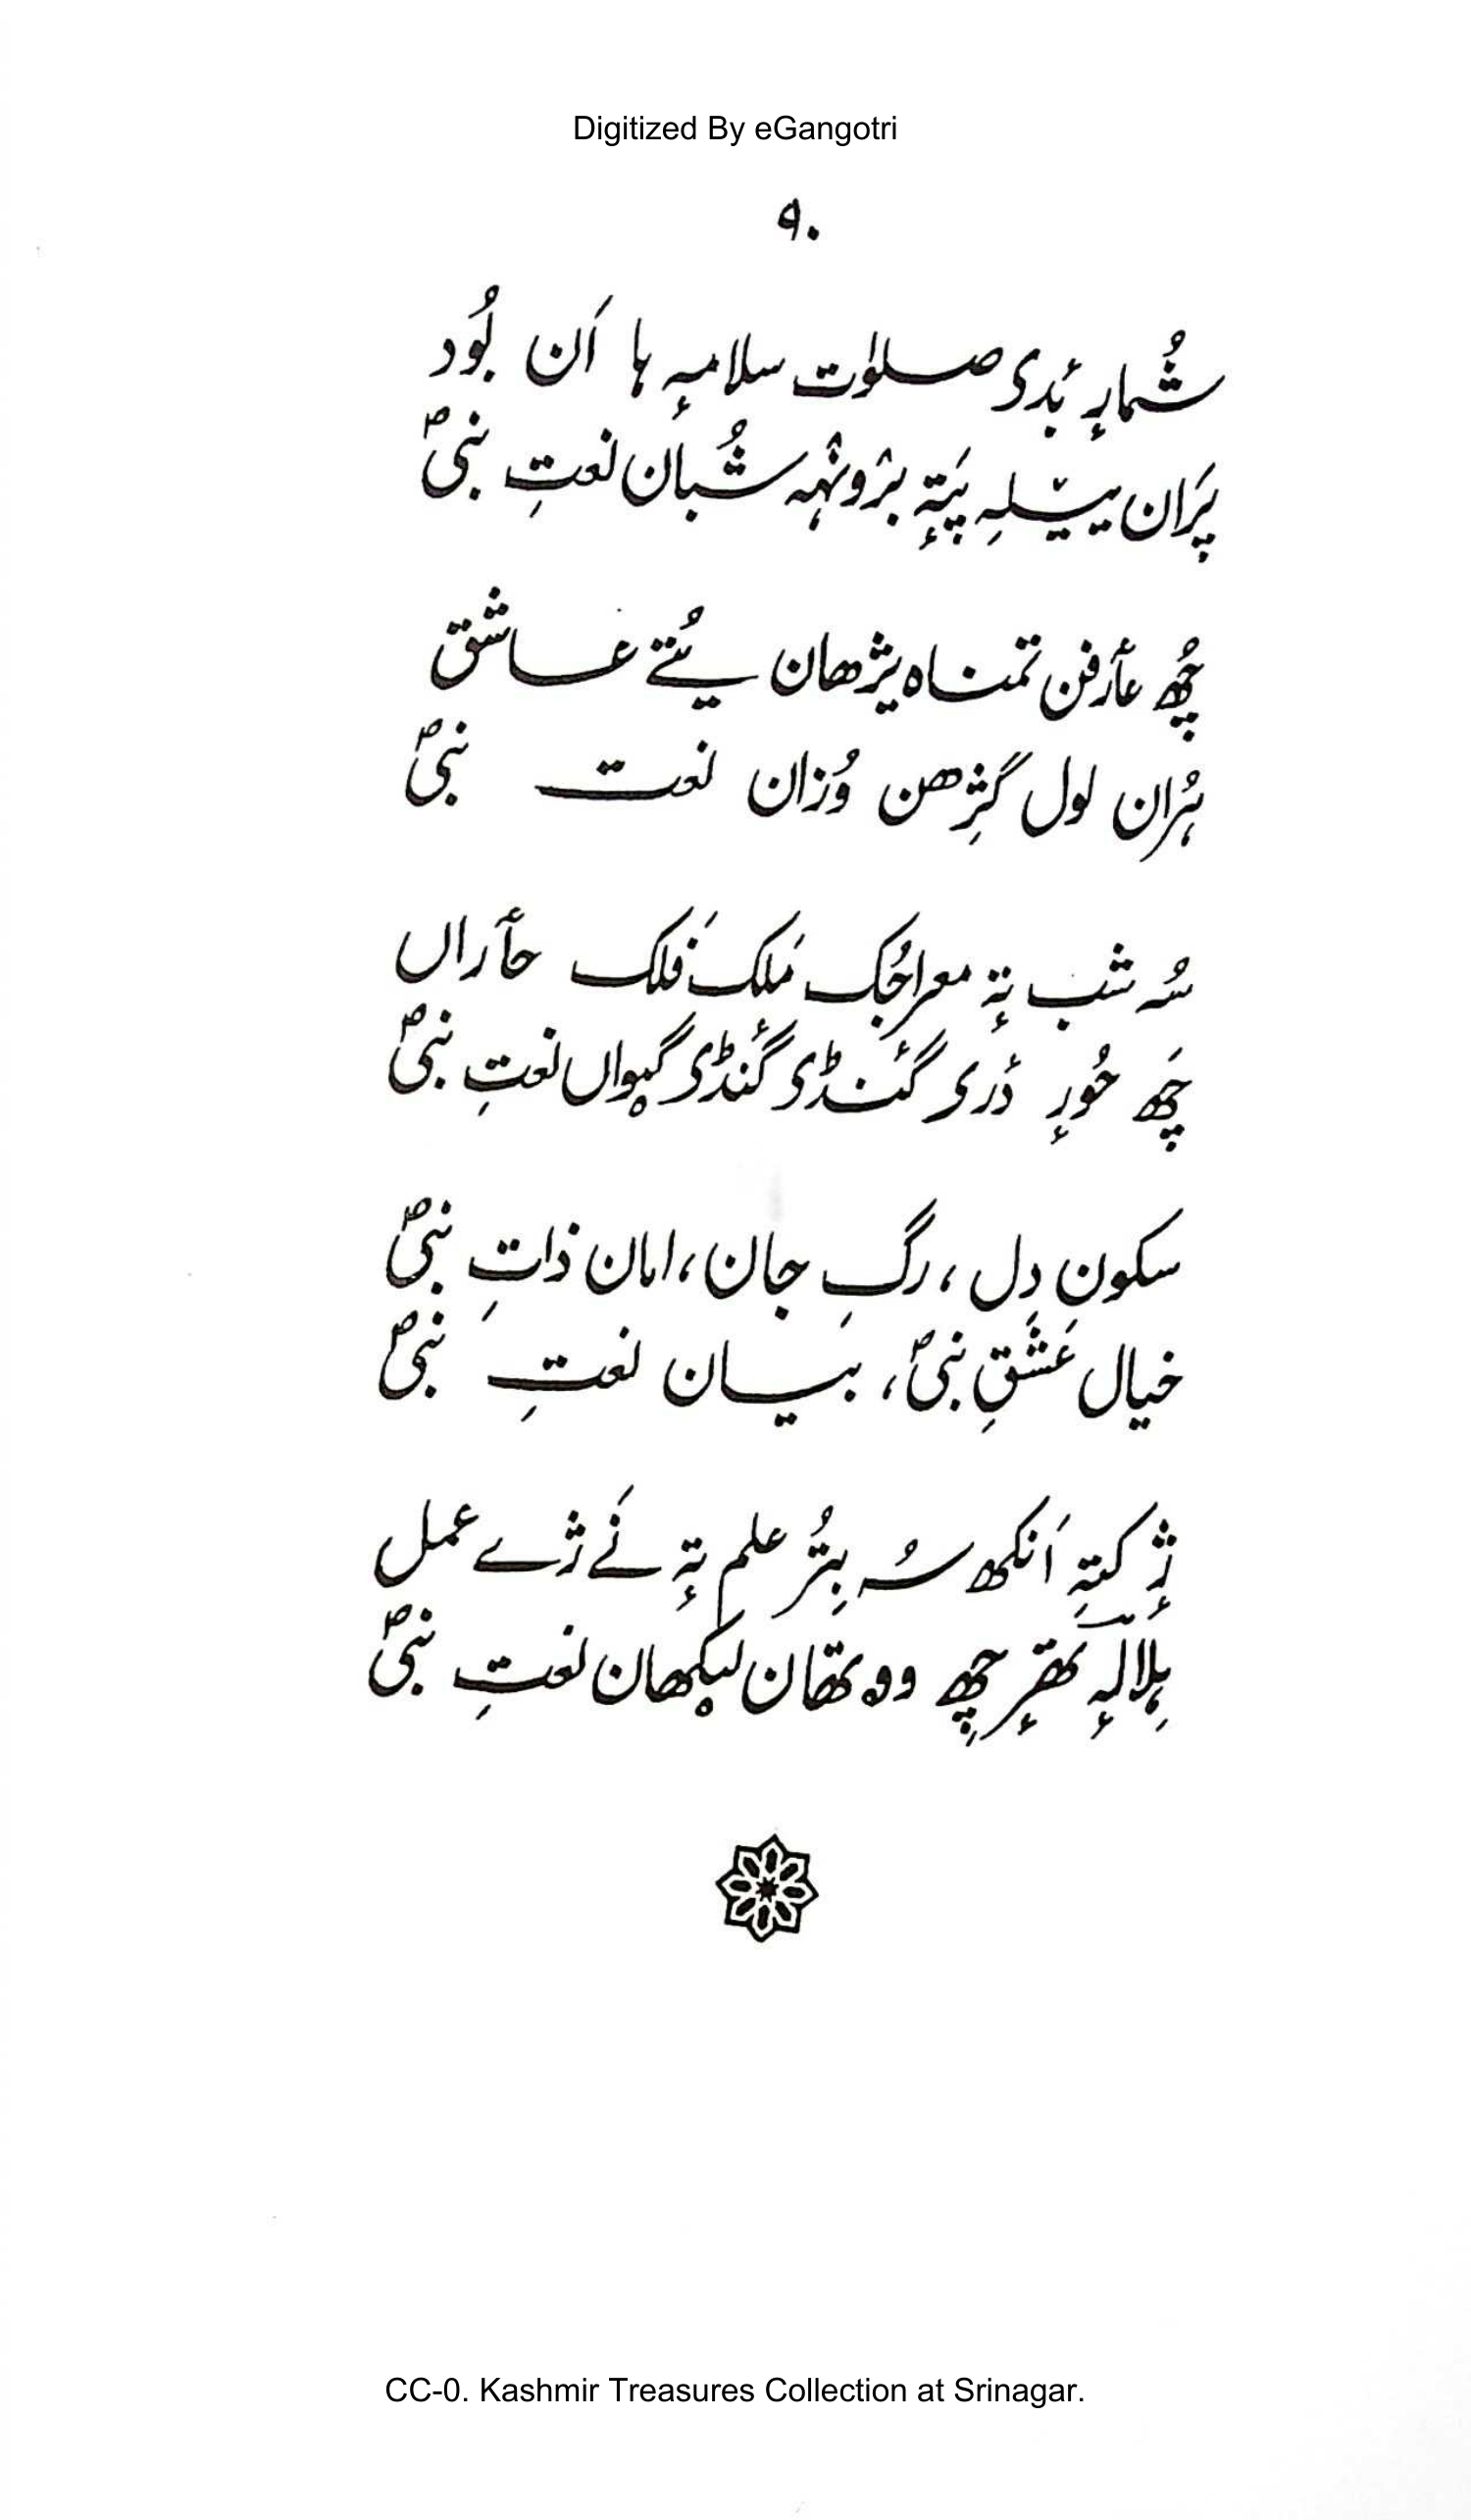 Digitized By eGangotri
۹۰
شُمارٕ بٔدی صلوٰت سلامہٕ ہا اَن بُود
پَران ییٚلہِ پَتہٕ برٛونٛہہ شُبان نعتِ نبیؐ
چُھ عٲرفن تمناہ یژھان یُتے عاشق
ہُران لول گژِھن وُزان نعت نبیؐ
سُہ شب تہٕ معراجُک مَلک فَلک حٲراں
چَھ حُورٕ دٔری گنٔڈی گنٔڈی گیٖواں نعتِ نبیؐ
سکون دِل ، رگِ جان ، امان ذاتِ نبیؐ
خیال عَشَقِ نبیؐ ، بیان نعتِ نبیؐ
ژٕ کتہِ اَنکھ سُہ بِتُر علم تہٕ نَے ژے عمل
ہِلالہٕ تھقٕر چھِ وۄتھان لیٖکھان نعتِ نبیؐ
CC-0. Kashmir Treasures Collection at Srinagar.